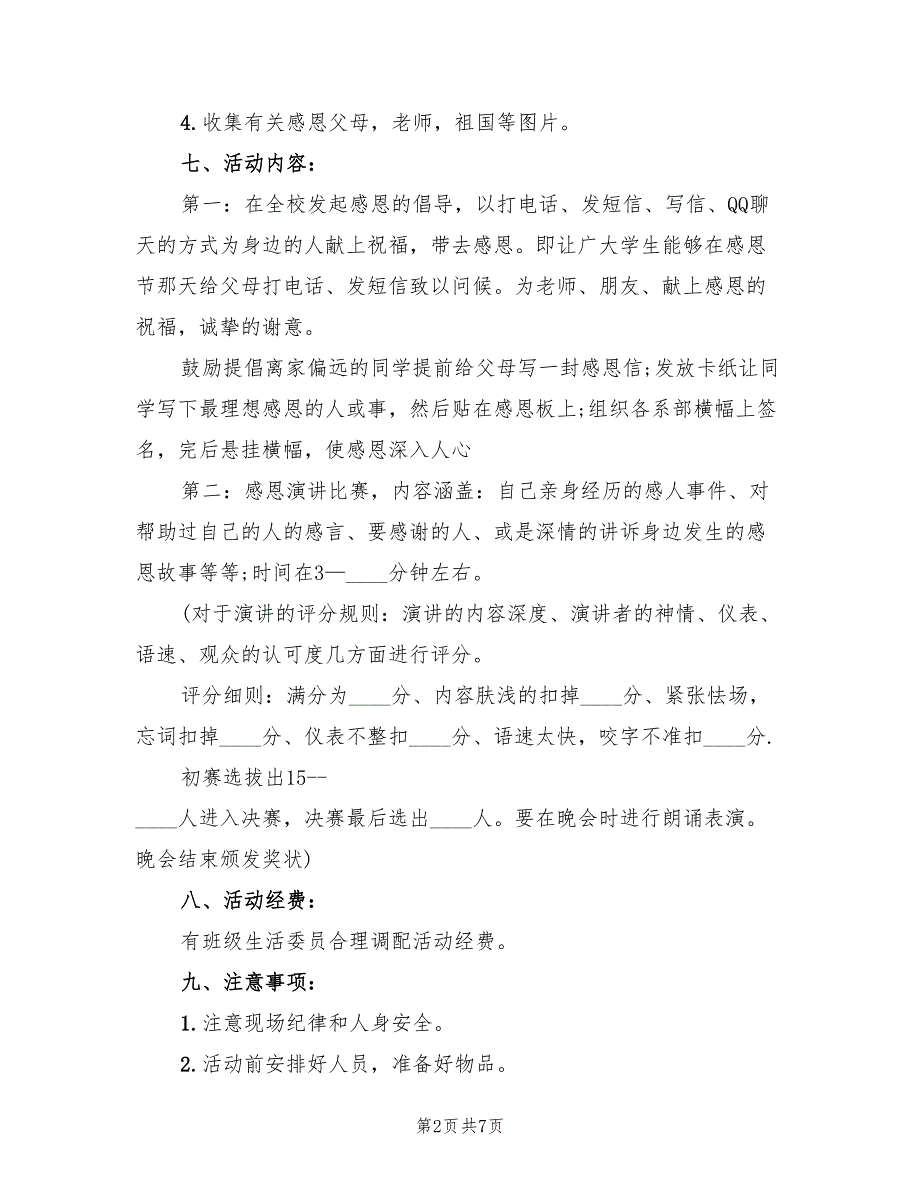 4.收集有关感恩父母，老师，祖国等图片。
七、活动内容：
第一：在全校发起感恩的倡导，以打电话、发短信、写信、QQ聊
天的方式为身边的人献上祝福，带去感恩。即让广大学生能够在感恩
节那天给父母打电话、发短信致以问候。为老师、朋友、献上感恩的
祝福，诚挚的谢意。
鼓励提倡离家偏远的同学提前给父母写一封感恩信;发放卡纸让同
学写下最理想感恩的人或事，然后贴在感恩板上;组织各系部横幅上签
名，完后悬挂横幅，使感恩深入人心
第二：感恩演讲比赛，内容涵盖：自己亲身经历的感人事件、对
帮助过自己的人的感言、要感谢的人、或是深情的讲诉身边发生的感
恩故事等等;时间在3—____分钟左右。
(对于演讲的评分规则：演讲的内容深度、演讲者的神情、仪表、
语速、观众的认可度几方面进行评分。
评分细则：满分为____分、内容肤浅的扣掉____分、紧张怯场，
忘词扣掉____分、仪表不整扣____分、语速太快，咬字不准扣____分.
初赛选拔出15--
____人进入决赛，决赛最后选出____人。要在晚会时进行朗诵表演。
晚会结束颁发奖状)
八、活动经费：
有班级生活委员合理调配活动经费。
九、注意事项：
1.注意现场纪律和人身安全。
2.活动前安排好人员，准备好物品。
第2页共7页